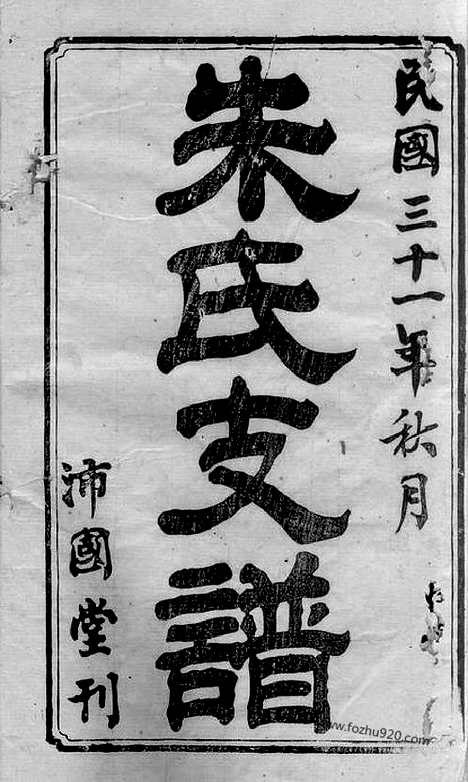 民國三十一年秋月
朱氏支譜
沛國堂刊
www.fozhu920.com